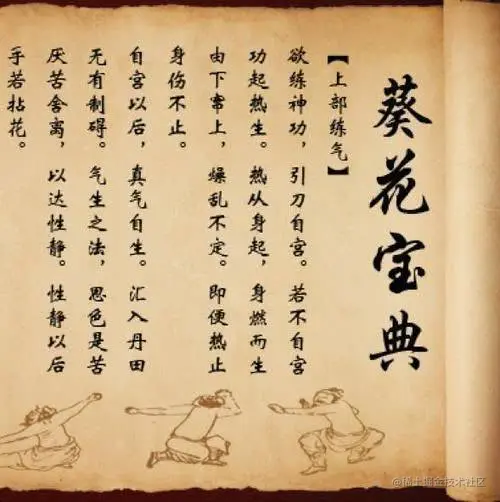 葵花宝典
【上部练气】
欲练神功，引刀自宫。若不自宫
功起热生。热从身起，身燃而生
由下窜上，燥乱不定。即便热止
身伤不止。
自宫以后，真气自生。汇入丹田
无有制碍。气生之法，思色是苦
厌苦舍离，以达性静。性静以后
手若拈花。
@稀土掘金技术社区